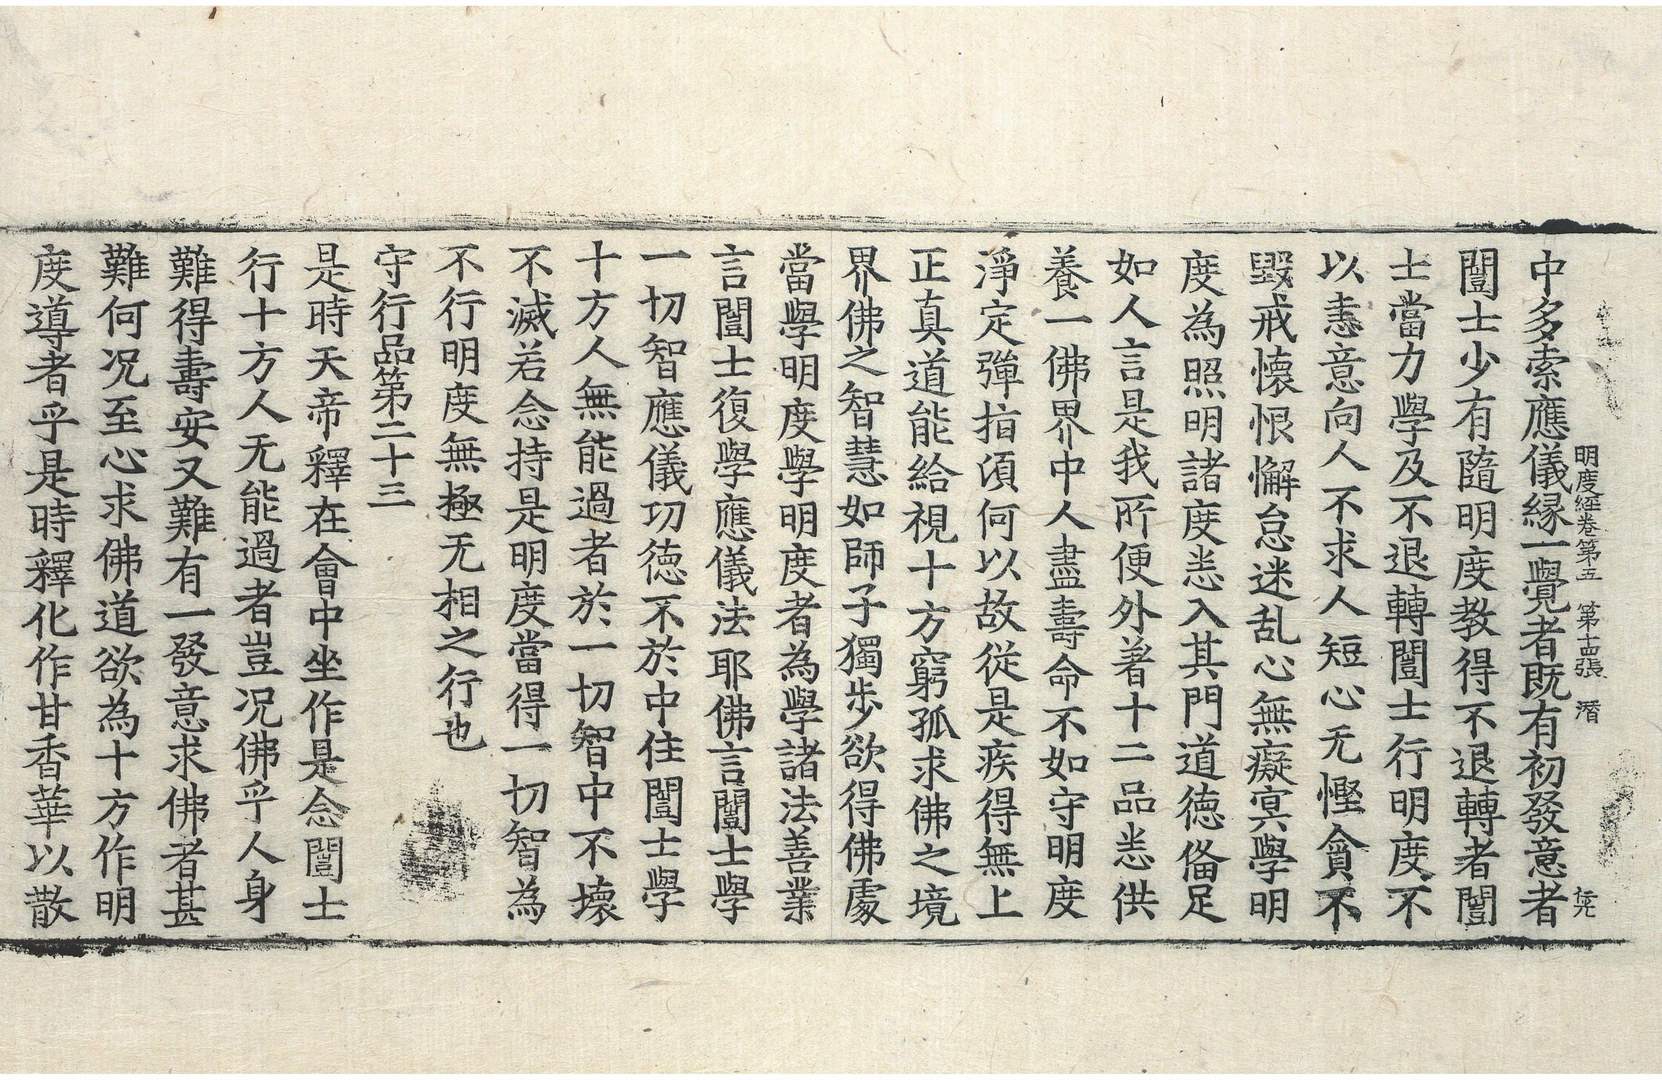 明度經卷第五　第十四張　潛
中多索應儀緣一覺者既有初發意者
闓士少有隨明度教得不退轉者闓
士當力學及不退轉闓士行明度不
以恚意向人不求人短心无慳貪不
毀戒懷恨懈怠迷乱心無癡冥學明
度為照明諸度悉入其門道德俻足
如人言是我所便外著十二品悉供
養一佛界中人盡壽命不如守明度
淨定彈指頃何以故從是疾得無上
正真道能給視十方窮孤求佛之境
界佛之智慧如師子獨步欲得佛處
當學明度學明度者為學諸法善業
言闓士復學應儀法耶佛言闓士學
一切智應儀功德不於中住闓士學
十方人無能過者於一切智中不壞
不滅若念持是明度當得一切智為
不行明度無極无相之行也
守行品第二十三
是時天帝釋在會中坐作是念闓士
行十方人无能過者豈况佛乎人身
難得壽安又難有一發意求佛者甚
難何况至心求佛道欲為十方作明
度導者乎是時釋化作甘香華以散